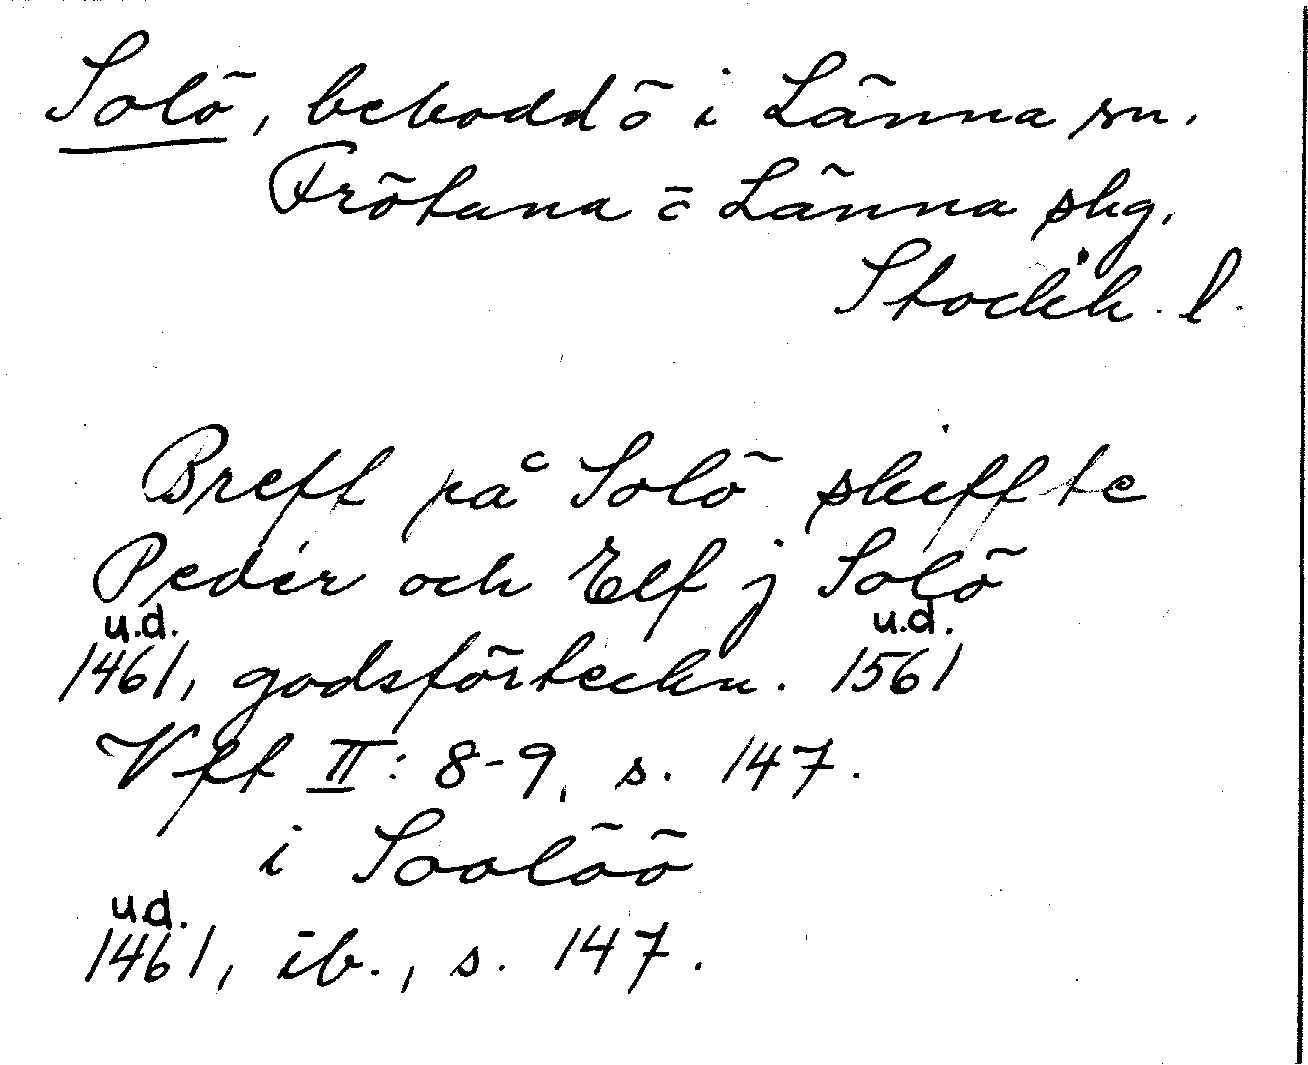 Solö, bebodd ö i Länna sn.
Frötuna o Länna skg.
Stockh. l.
Breff på Solö skeffte
Peder och Elf j Solö
u.d. u.d.
1461, godsförteckn. 1561
Vff II: 8-9, s. 147.
i Soolöö
u.d.
1461, ib., s. 147.